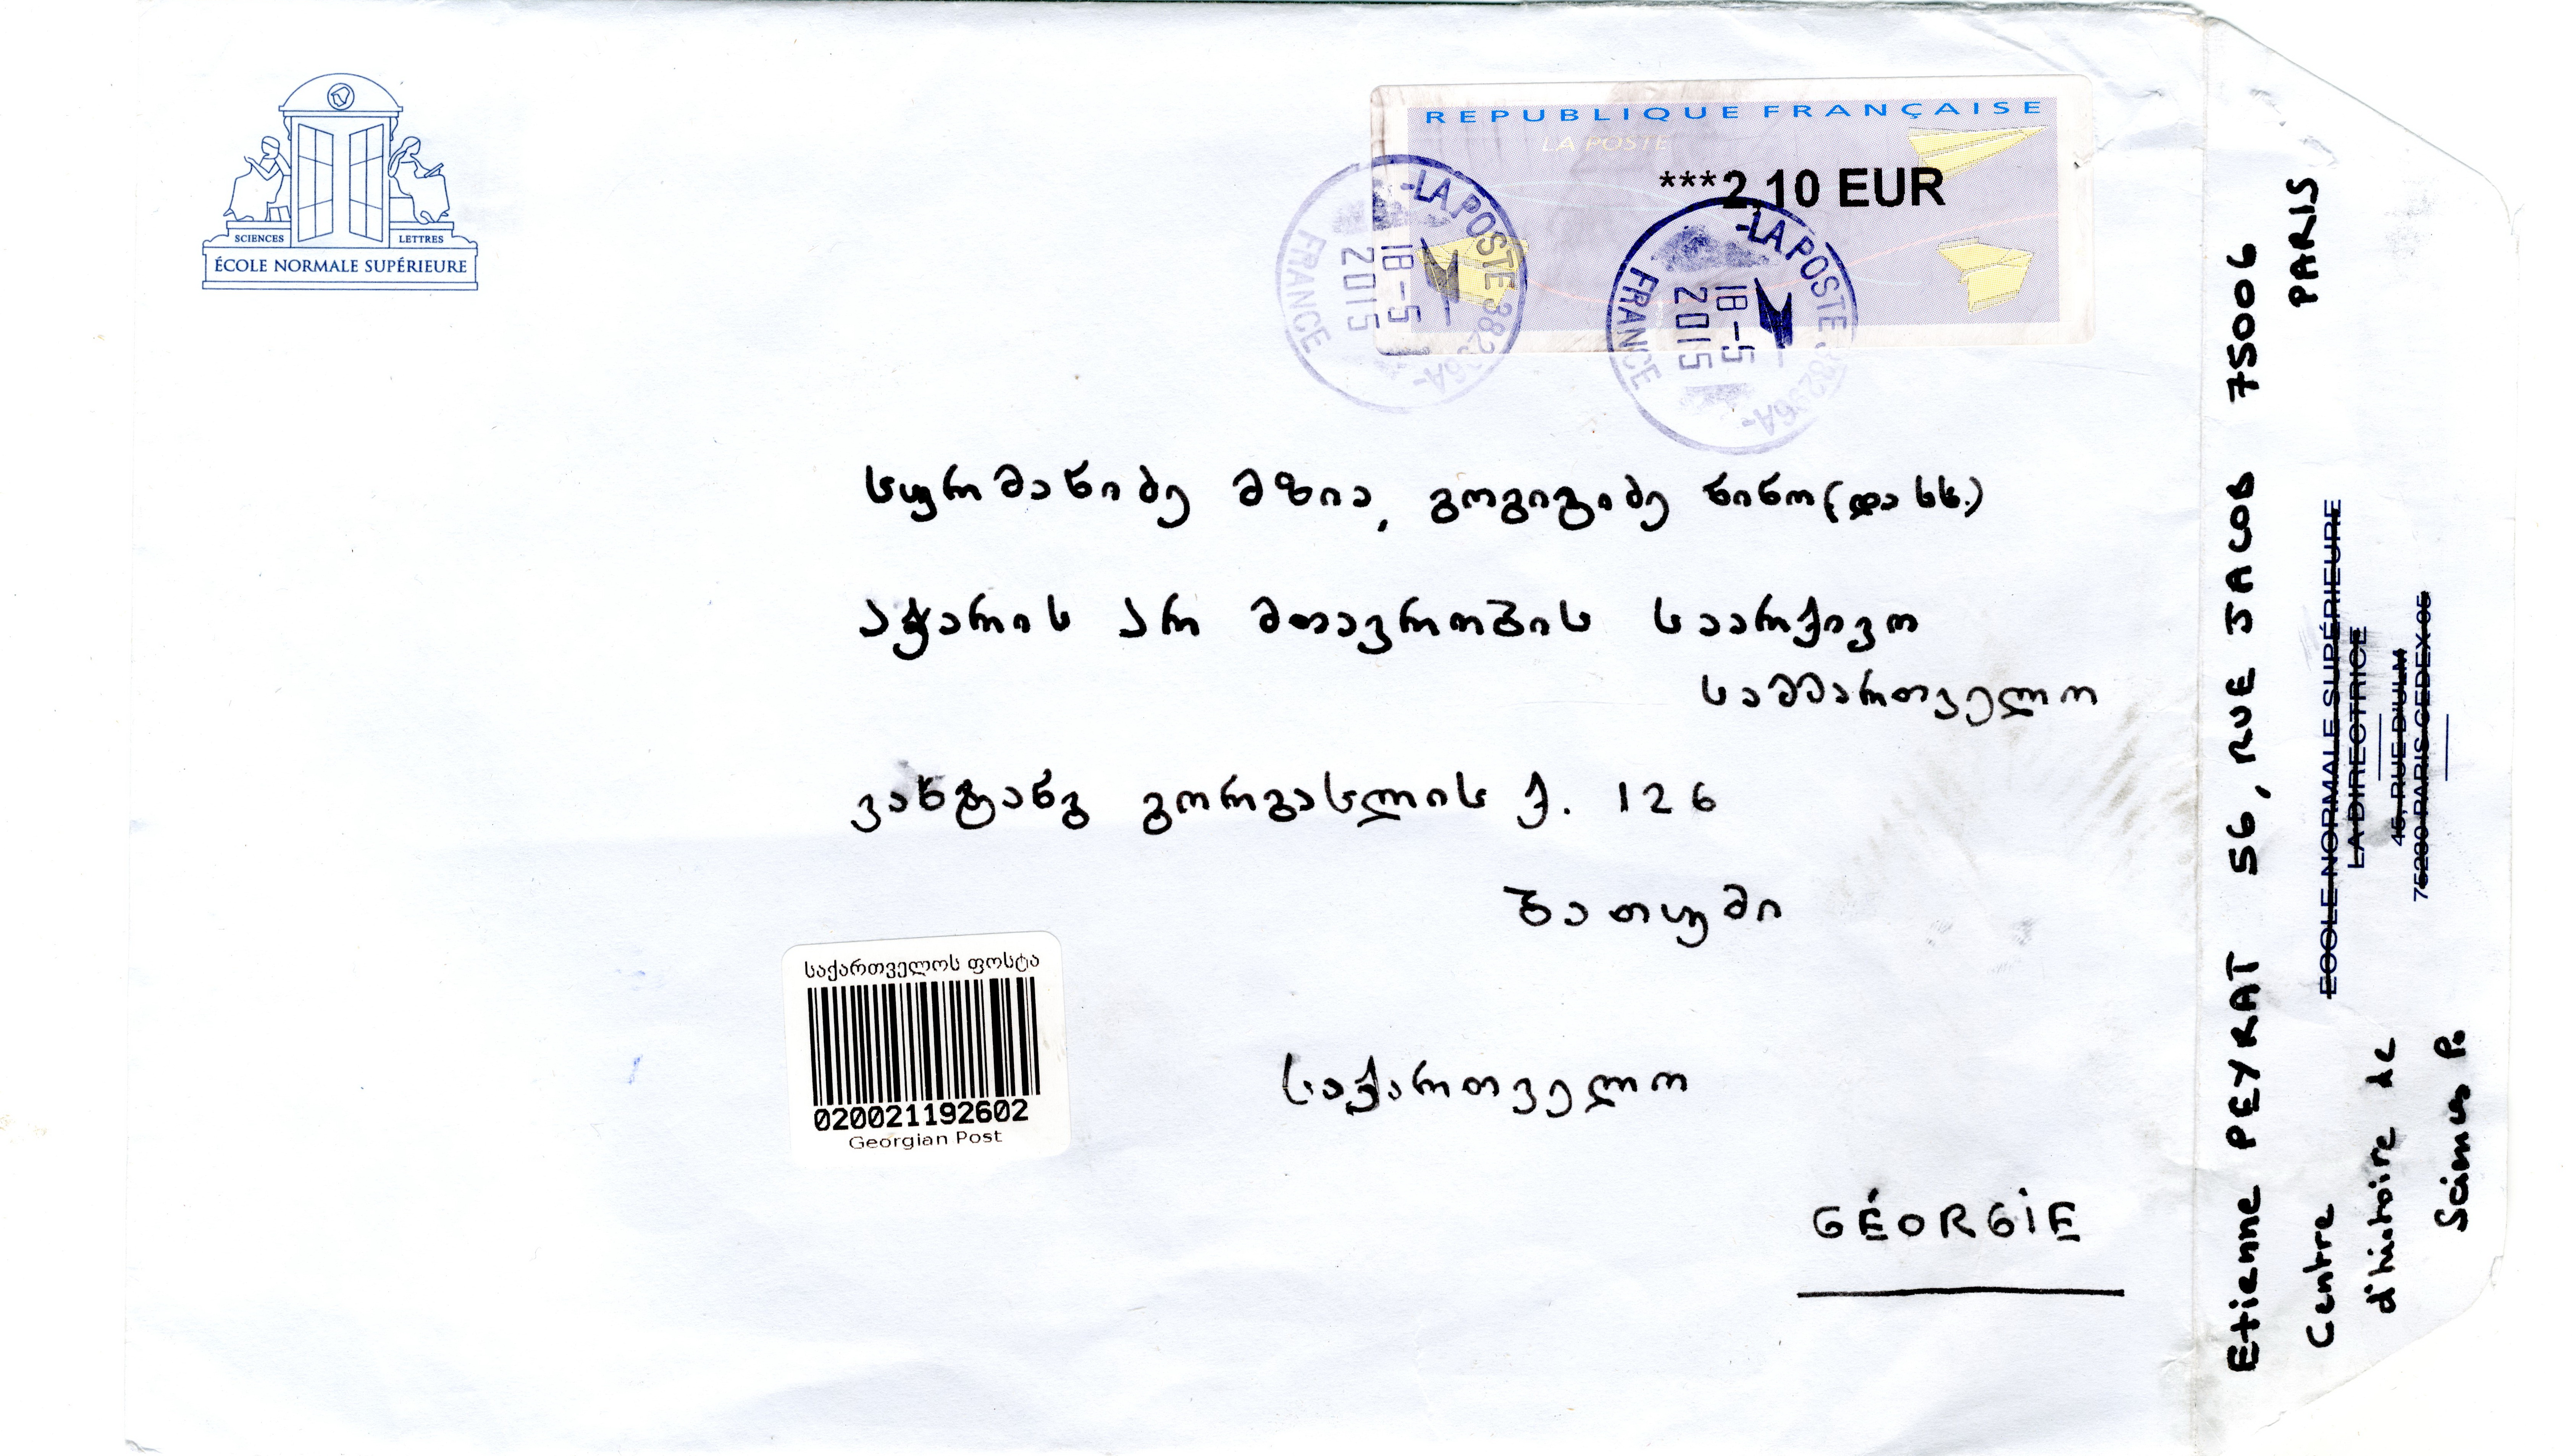 SCIENCES
LETTRES
ÉCOLE NORMALE SUPÉRIEURE
REPUBLIQUE FRANÇAISE
LA POSTE
***2,10 EUR
-LA POSTE 38296A-
18-5
2015
FRANCE
-LA POSTE 38296A-
18-5
2015
FRANCE
სურმანიძე მზია, გოგიტიძე ნინო (და სხ.)
აჭარის არ მთავრობის საარქივო
სამმართველო
ვახტანგ გორგასლის ქ. 126
ბათუმი
საქართველოს ფოსტა
020021192602
Georgian Post
საქართველო
GÉORGIE
Etienne PEYRAT 56, RUE JACOB 75006
PARIS
Centre
d'histoire de
Sciences Po
ECOLE NORMALE SUPÉRIEURE
LA DIRECTRICE
45, RUE D'ULM
75230 PARIS CEDEX 05